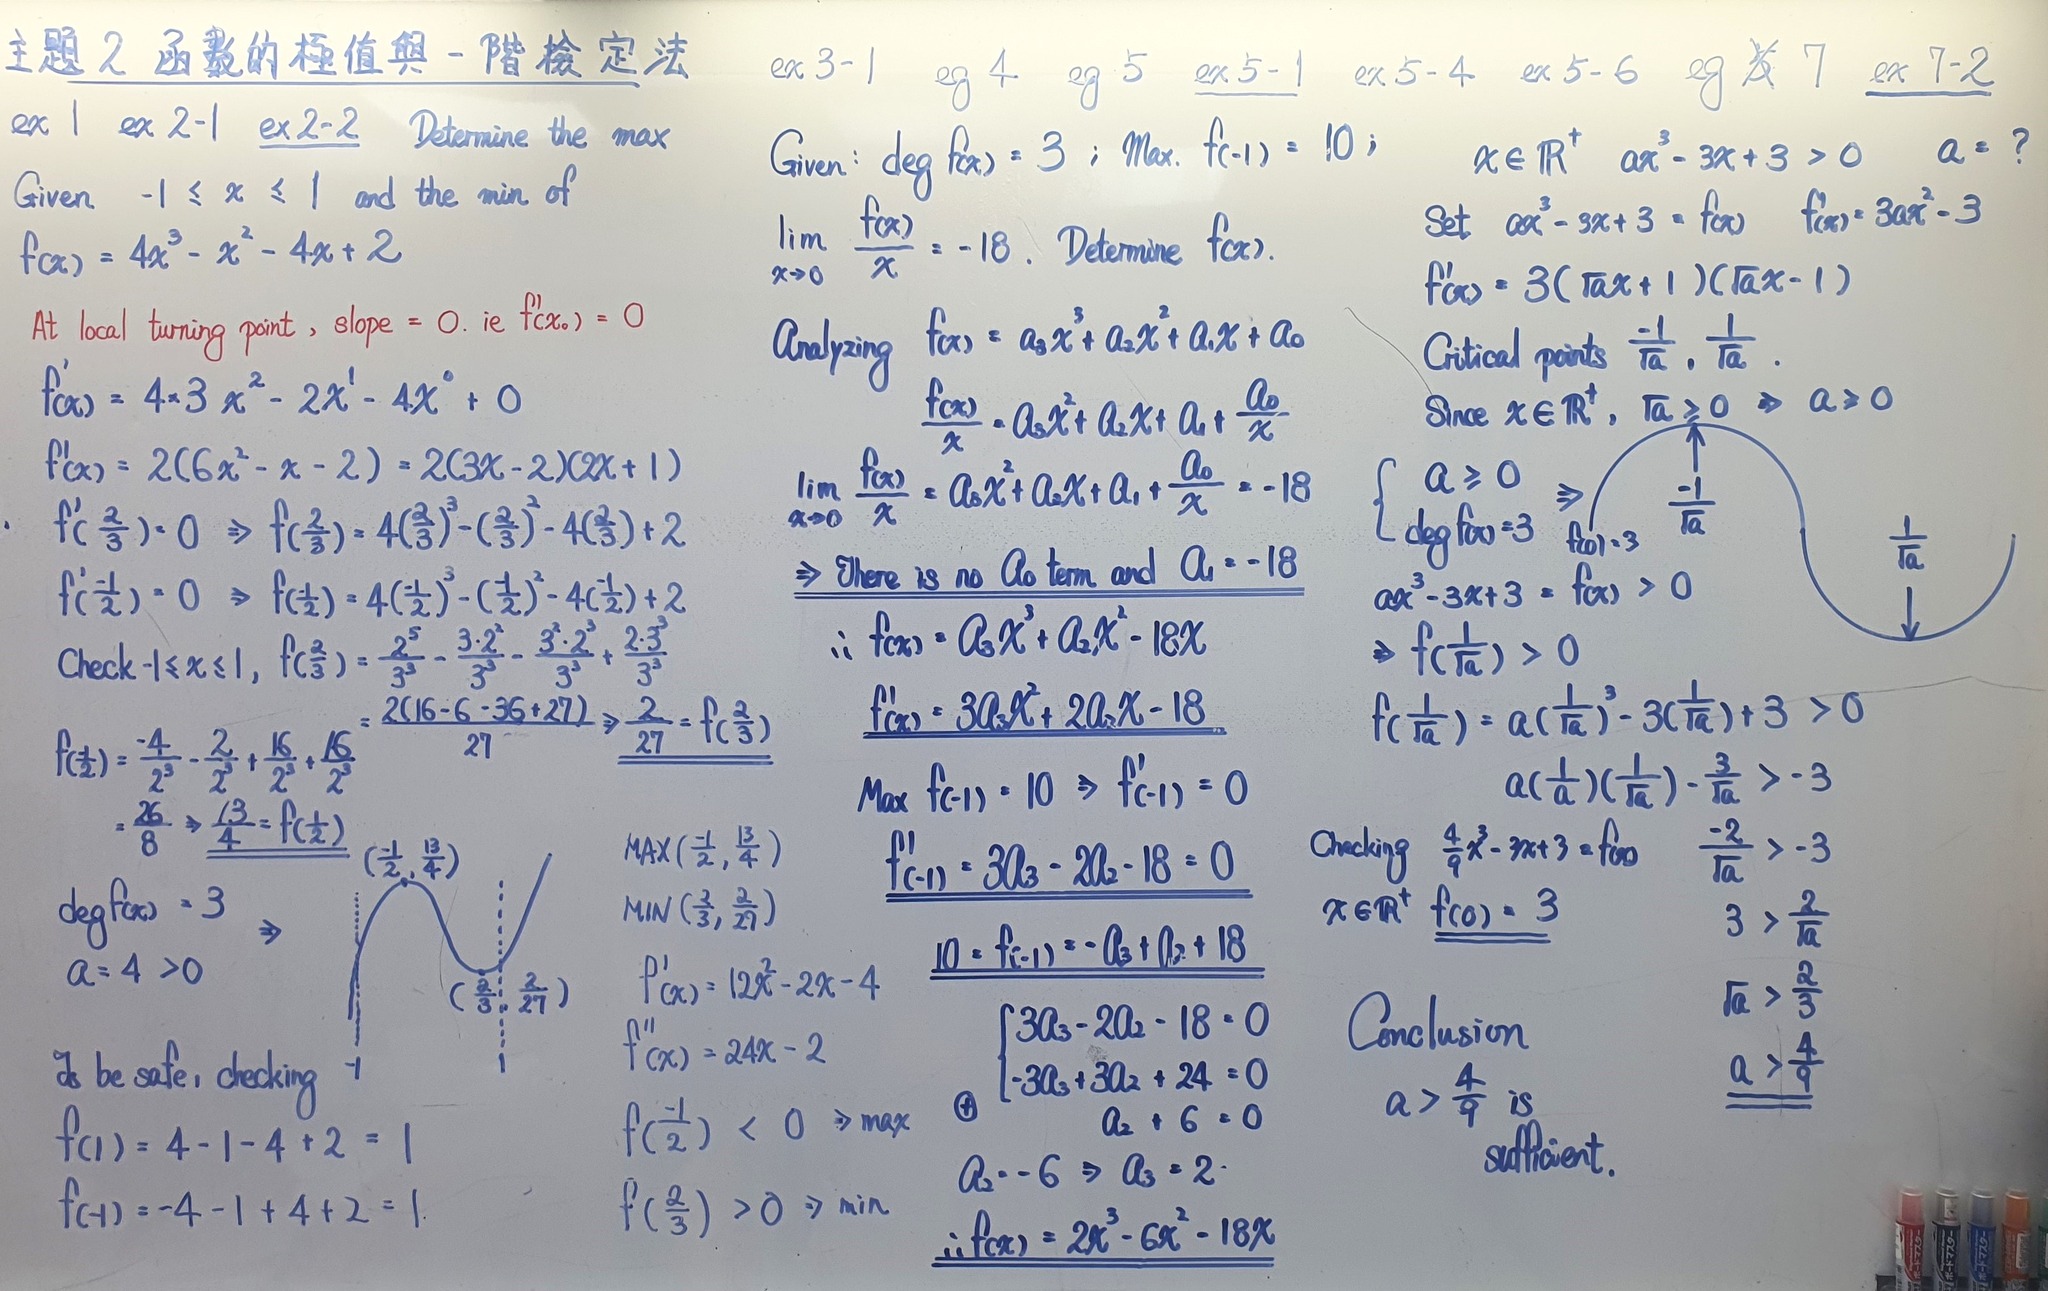 主題2 函數的極值與一階檢定法
ex 1 ex 2-1 ex 2-2 Determine the max
Given -1 ≤ x ≤ 1 and the min of
f(x) = 4x³ - x² - 4x + 2
At local turning point, slope = 0. ie f'(x₀) = 0
f'(x) = 4×3 x² - 2x¹ - 4x⁰ + 0
f'(x) = 2(6x² - x - 2) = 2(3x-2)(2x+1)
f'(2/3) = 0 ⇒ f(2/3) = 4(2/3)³ - (2/3)² - 4(2/3) + 2
f'(-1/2) = 0 ⇒ f(-1/2) = 4(-1/2)³ - (-1/2)² - 4(-1/2) + 2
Check -1 ≤ x ≤ 1, f(2/3) = 2⁵/3³ - 3·2²/3³ - 3²·2³/3³ + 2·3³/3³
= 2(16-6-36+27)/27 ⇒ 2/27 = f(2/3)
f(-1/2) = -4/2³ - 2/2³ + 16/2³ + 16/2³
= 26/8 ⇒ 13/4 = f(-1/2)
deg f(x) = 3 ⇒
a = 4 > 0
(-1/2, 13/4)
(2/3, 2/27)
-1 1
To be safe, checking
f(1) = 4 - 1 - 4 + 2 = 1
f(-1) = -4 - 1 + 4 + 2 = 1
MAX(-1/2, 13/4)
MIN(2/3, 2/27)
f'(x) = 12x² - 2x - 4
f''(x) = 24x - 2
f(-1/2) < 0 ⇒ max
f(2/3) > 0 ⇒ min
ex 3-1 eg 4 eg 5 ex 5-1 ex 5-4 ex 5-6 eg 7 ex 7-2
Given: deg f(x) = 3 ; Max. f(-1) = 10 ;
lim x→0 f(x)/x = -18. Determine f(x).
Analyzing f(x) = a₃x³ + a₂x² + a₁x + a₀
f(x)/x = a₃x² + a₂x + a₁ + a₀/x
lim x→0 f(x)/x = a₃x² + a₂x + a₁ + a₀/x = -18
⇒ There is no a₀ term and a₁ = -18
∴ f(x) = a₃x³ + a₂x² - 18x
f'(x) = 3a₃x² + 2a₂x - 18
Max f(-1) = 10 ⇒ f'(-1) = 0
f'(-1) = 3a₃ - 2a₂ - 18 = 0
10 = f(-1) = -a₃ + a₂ + 18
3a₃ - 2a₂ - 18 = 0
-3a₃ + 3a₂ + 24 = 0
⊕ a₂ + 6 = 0
a₂ = -6 ⇒ a₃ = 2.
∴ f(x) = 2x³ - 6x² - 18x
x ∈ ℝ⁺ ax³ - 3x + 3 > 0 a = ?
Set ax³ - 3x + 3 = f(x) f'(x) = 3ax² - 3
f'(x) = 3(√a x + 1)(√a x - 1)
Critical points -1/√a, 1/√a.
Since x ∈ ℝ⁺, √a ≥ 0 ⇒ a ≥ 0
{ a ≥ 0
deg f(x) = 3 ⇒
f(0) = 3
-1/√a
1/√a
ax³ - 3x + 3 = f(x) > 0
⇒ f(1/√a) > 0
f(1/√a) = a(1/√a)³ - 3(1/√a) + 3 > 0
a(1/a)(1/√a) - 3/√a > -3
-2/√a > -3
3 > 2/√a
√a > 2/3
a > 4/9
Checking 4/9x³ - 3x + 3 = f(x)
x ∈ ℝ⁺ f(0) = 3
Conclusion
a > 4/9 is
sufficient.